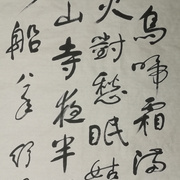 烏啼霜滿
火對愁眠姑
山寺夜半
船